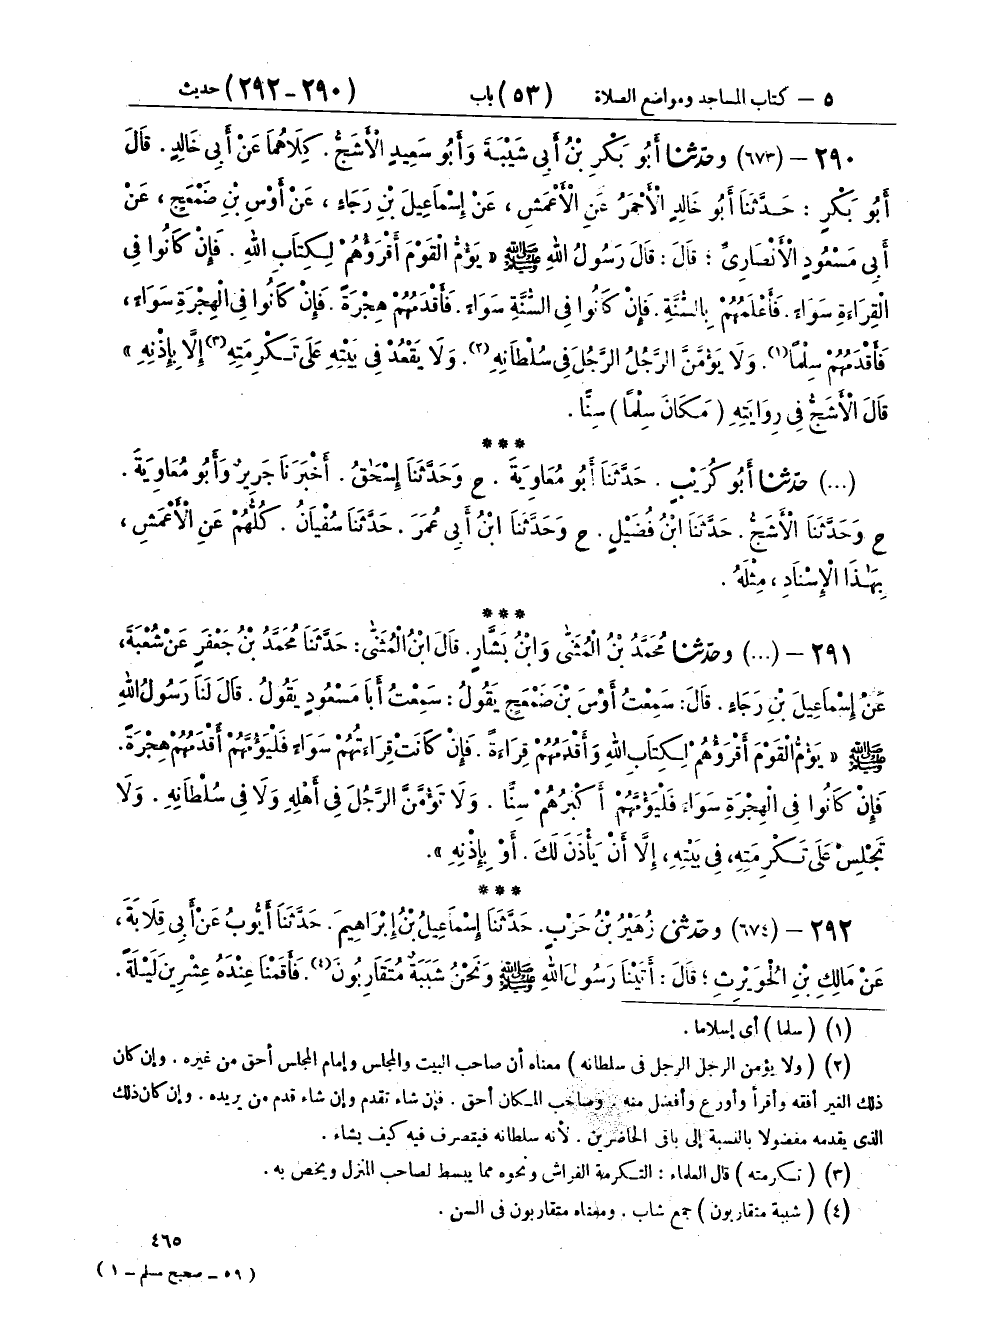 ٥ – كتاب المساجد ومواضع الصلاة (٥٣) باب (٢٩٠–٢٩٢) حديث
٢٩٠ – (٦٧٣) وحَدَّثَنَا أَبُو بَكْرِ بْنُ أَبِي شَيْبَةَ وَأَبُو سَعِيدٍ الْأَشَجُّ . كِلَاهُمَا عَنْ أَبِي خَالِدٍ . قَالَ
أَبُو بَكْرٍ : حَدَّثَنَا أَبُو خَالِدٍ الْأَحْمَرُ عَنِ الْأَعْمَشِ ، عَنْ إِسْمَاعِيلَ بْنِ رَجَاءٍ ، عَنْ أَوْسِ بْنِ ضَمْعَجٍ ، عَنْ
أَبِي مَسْعُودٍ الْأَنْصَارِيِّ ؛ قَالَ : قَالَ رَسُولُ اللهِ ﷺ « يَؤُمُّ الْقَوْمَ أَقْرَؤُهُمْ لِكِتَابِ اللهِ . فَإِنْ كَانُوا فِي
الْقِرَاءَةِ سَوَاءً . فَأَعْلَمُهُمْ بِالسُّنَّةِ . فَإِنْ كَانُوا فِي السُّنَّةِ سَوَاءً . فَأَقْدَمُهُمْ هِجْرَةً . فَإِنْ كَانُوا فِي الْهِجْرَةِ سَوَاءً ،
فَأَقْدَمُهُمْ سِلْمًا(١) . وَلَا يَؤُمَّنَّ الرَّجُلُ الرَّجُلَ فِي سُلْطَانِهِ(٢) . وَلَا يَقْعُدْ فِي بَيْتِهِ عَلَى تَكْرِمَتِهِ(٣) إِلَّا بِإِذْنِهِ »
قَالَ الْأَشَجُّ فِي رِوَايَتِهِ ( مَكَانَ سِلْمًا ) سِنًّا .
***
(...) حَدَّثَنَا أَبُو كُرَيْبٍ . حَدَّثَنَا أَبُو مُعَاوِيَةَ . ح وَحَدَّثَنَا إِسْحَٰقُ . أَخْبَرَنَا جَرِيرٌ وَأَبُو مُعَاوِيَةَ .
ح وَحَدَّثَنَا الْأَشَجُّ . حَدَّثَنَا ابْنُ فُضَيْلٍ . ح وَحَدَّثَنَا ابْنُ أَبِي عُمَرَ . حَدَّثَنَا سُفْيَانُ . كُلُّهُمْ عَنِ الْأَعْمَشِ ،
بِهَٰذَا الْإِسْنَادِ ، مِثْلَهُ .
***
٢٩١ – (...) وحَدَّثَنَا مُحَمَّدُ بْنُ الْمُثَنَّى وَابْنُ بَشَّارٍ . قَالَ ابْنُ الْمُثَنَّى : حَدَّثَنَا مُحَمَّدُ بْنُ جَعْفَرٍ عَنْ شُعْبَةَ ،
عَنْ إِسْمَاعِيلَ بْنِ رَجَاءٍ . قَالَ : سَمِعْتُ أَوْسَ بْنَ ضَمْعَجٍ يَقُولُ : سَمِعْتُ أَبَا مَسْعُودٍ يَقُولُ . قَالَ لَنَا رَسُولُ اللهِ
ﷺ « يَؤُمُّ الْقَوْمَ أَقْرَؤُهُمْ لِكِتَابِ اللهِ وَأَقْدَمُهُمْ قِرَاءَةً . فَإِنْ كَانَتْ قِرَاءَتُهُمْ سَوَاءً فَلْيَؤُمَّهُمْ أَقْدَمُهُمْ هِجْرَةً .
فَإِنْ كَانُوا فِي الْهِجْرَةِ سَوَاءً فَلْيَؤُمَّهُمْ أَكْبَرُهُمْ سِنًّا . وَلَا تَؤُمَّنَّ الرَّجُلَ فِي أَهْلِهِ وَلَا فِي سُلْطَانِهِ . وَلَا
تَجْلِسْ عَلَى تَكْرِمَتِهِ ، فِي بَيْتِهِ ، إِلَّا أَنْ يَأْذَنَ لَكَ . أَوْ بِإِذْنِهِ » .
***
٢٩٢ – (٦٧٤) وحَدَّثَنِي زُهَيْرُ بْنُ حَرْبٍ . حَدَّثَنَا إِسْمَاعِيلُ بْنُ إِبْرَاهِيمَ . حَدَّثَنَا أَيُّوبُ عَنْ أَبِي قِلَابَةَ ،
عَنْ مَالِكِ بْنِ الْحُوَيْرِثِ ؛ قَالَ : أَتَيْنَا رَسُولَ اللهِ ﷺ وَنَحْنُ شَبَبَةٌ مُتَقَارِبُونَ(٤) . فَأَقَمْنَا عِنْدَهُ عِشْرِينَ لَيْلَةً .
(١) ( سلما ) أى إسلاما .
(٢) ( ولا يؤمن الرجل الرجل فى سلطانه ) معناه أن صاحب البيت والمجلس وإمام المجلس أحق من غيره . وإن كان
ذلك الغير أفقه وأقرأ وأورع وأفضل منه . وصاحب المكان أحق . فإن شاء تقدم وإن شاء قدم من يريده . وإن كان ذلك
الذى يقدمه مفضولا بالنسبة إلى باقى الحاضرين . لأنه سلطانه فيتصرف فيه كيف يشاء .
(٣) ( تكرمته ) قال العلماء : التكرمة الفراش ونحوه مما يبسط لصاحب المنزل ويخص به .
(٤) ( شببة متقاربون ) جمع شاب . ومعناه متقاربون فى السن .
٤٦٥
( ٥٩ – صحيح مسلم – ١ )